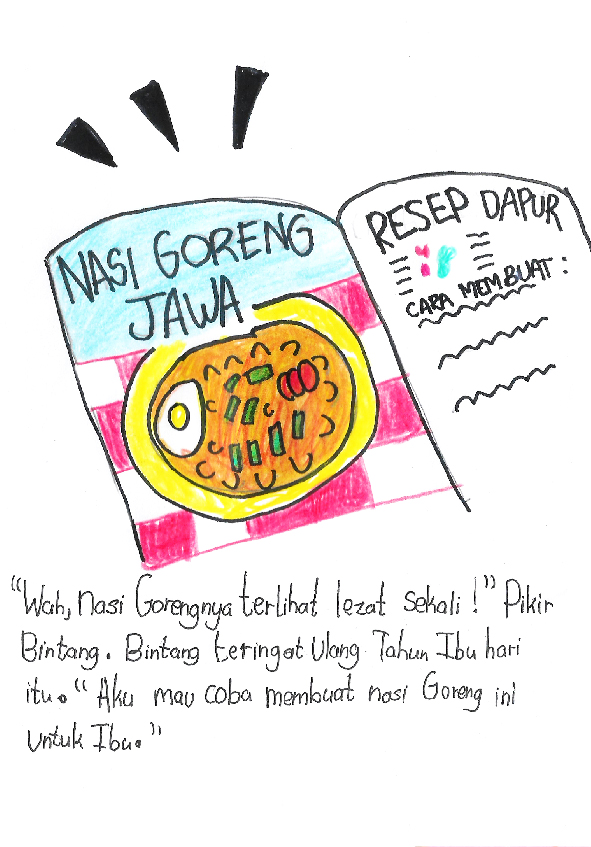 NASI GORENG
JAWA
RESEP DAPUR
CARA MEMBUAT :
"Wah, nasi Gorengnya terlihat lezat sekali !" Pikir
Bintang. Bintang teringat Ulang Tahun Ibu hari
itu. " Aku mau coba membuat nasi Goreng ini
untuk Ibu."